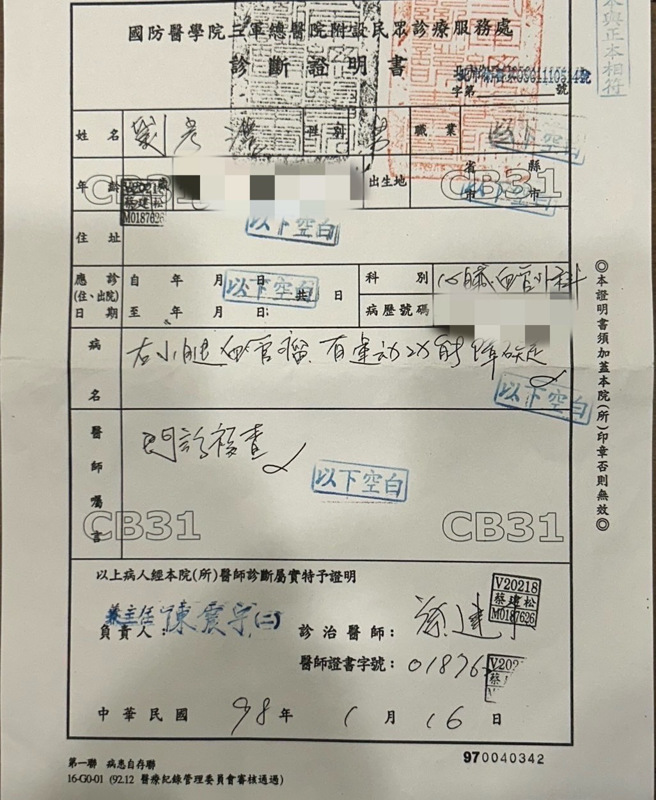 國防醫學院三軍總醫院附設民眾診療服務處
診斷證明書
本與正本相符
字第 號
姓名 劉彥 性別 男 職業 以下空白
年齡 歲 出生地 省市 縣市
V20218
蔡建松
M0187626
CB31 CB31
以下空白
住址
應診(住、出院)日期 自 年 月 日 共 日 以下空白
至 年 月 日
科別 心臟血管外科
病歷號碼
病名 右小腿血管瘤,有運動功能障礙
以下空白
醫師囑言 門診複查
以下空白
CB31 CB31
以上病人經本院(所)醫師診斷屬實特予證明
兼主任
負責人: 陳震宇(二) 診治醫師: 蔡建
V20218
蔡建松
M0187626
醫師證書字號: 01876
V202
蔡
中華民國 98 年 1 月 16 日
第一聯 病患自存聯
970040342
16-G0-01 (92.12 醫療紀錄管理委員會審核通過)
◎本證明書須加蓋本院(所)印章否則無效◎